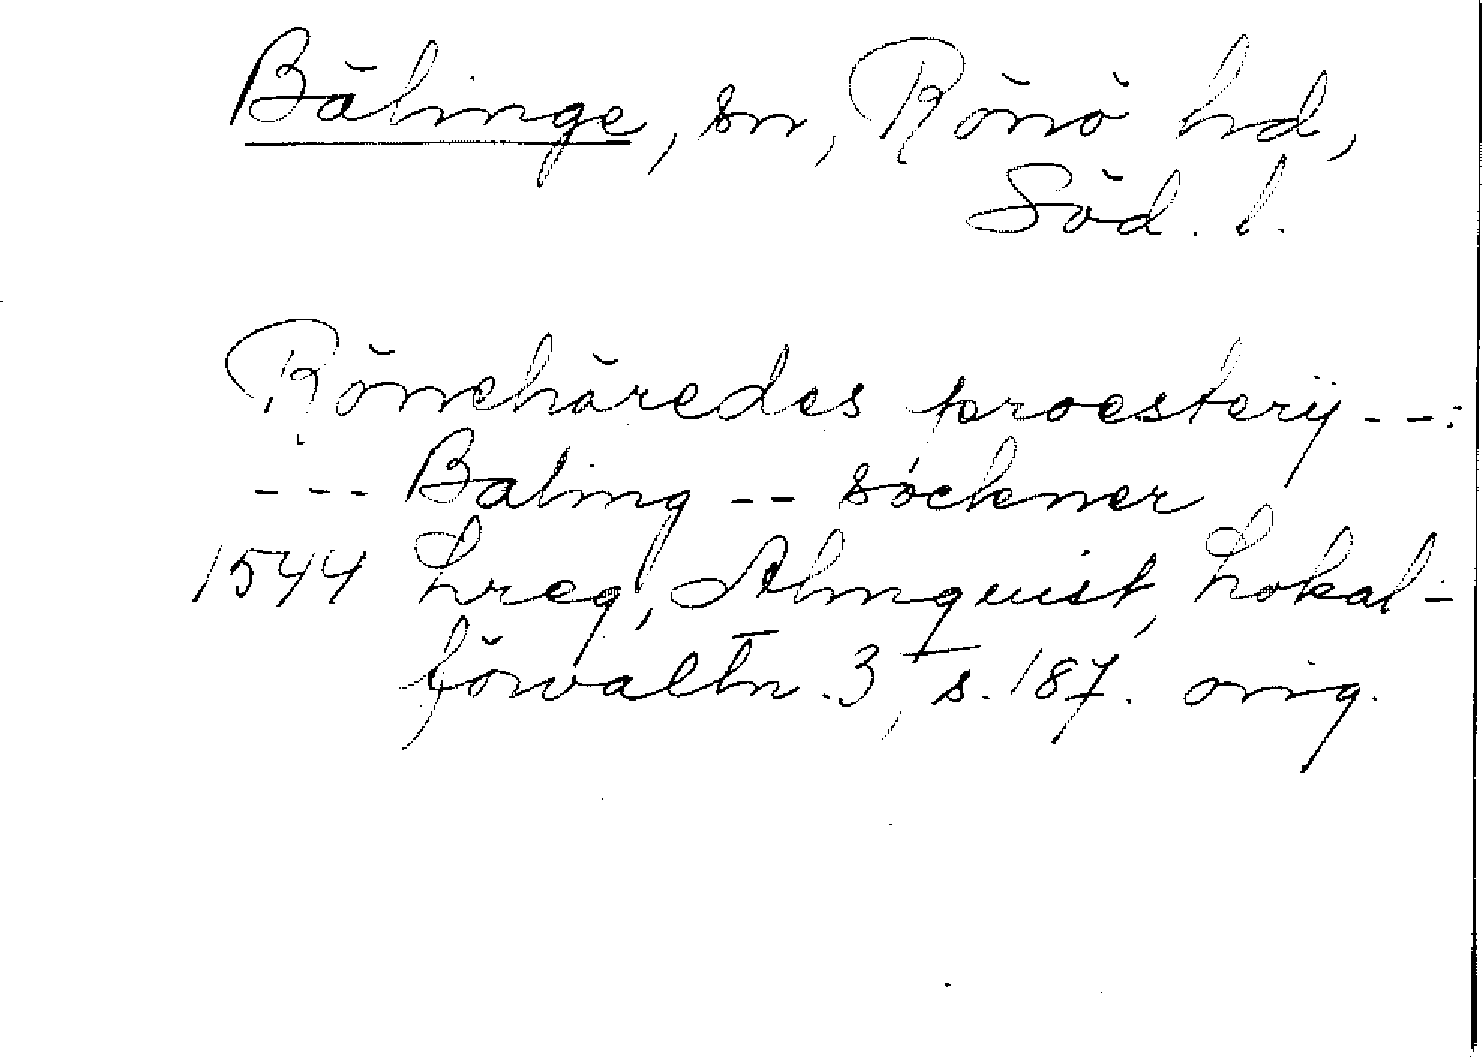 Bälinge, sn, Rönö hd,
Söd. l.
Rönehäredes proesterij --:
--- Baling -- sockner
1544 Lreg, Almquist, Lokal-
förvaltn. 3, s. 187. orig.